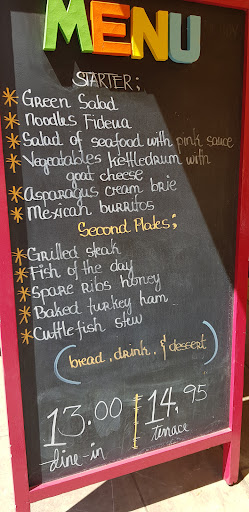 MENU
STARTER;
Green Salad
Noodles Fideua
Salad of seafood with pink sauce
Vegeatables kettledrum with
goat cheese
Asparagus cream brie
Mexican burritos
Second Plates;
Grilled steak
Fish of the day
Spare Ribs honey
Baked turkey ham
Cuttlefish stew
(bread, drink, & dessert)
13.00 14,95
dine-in terrace